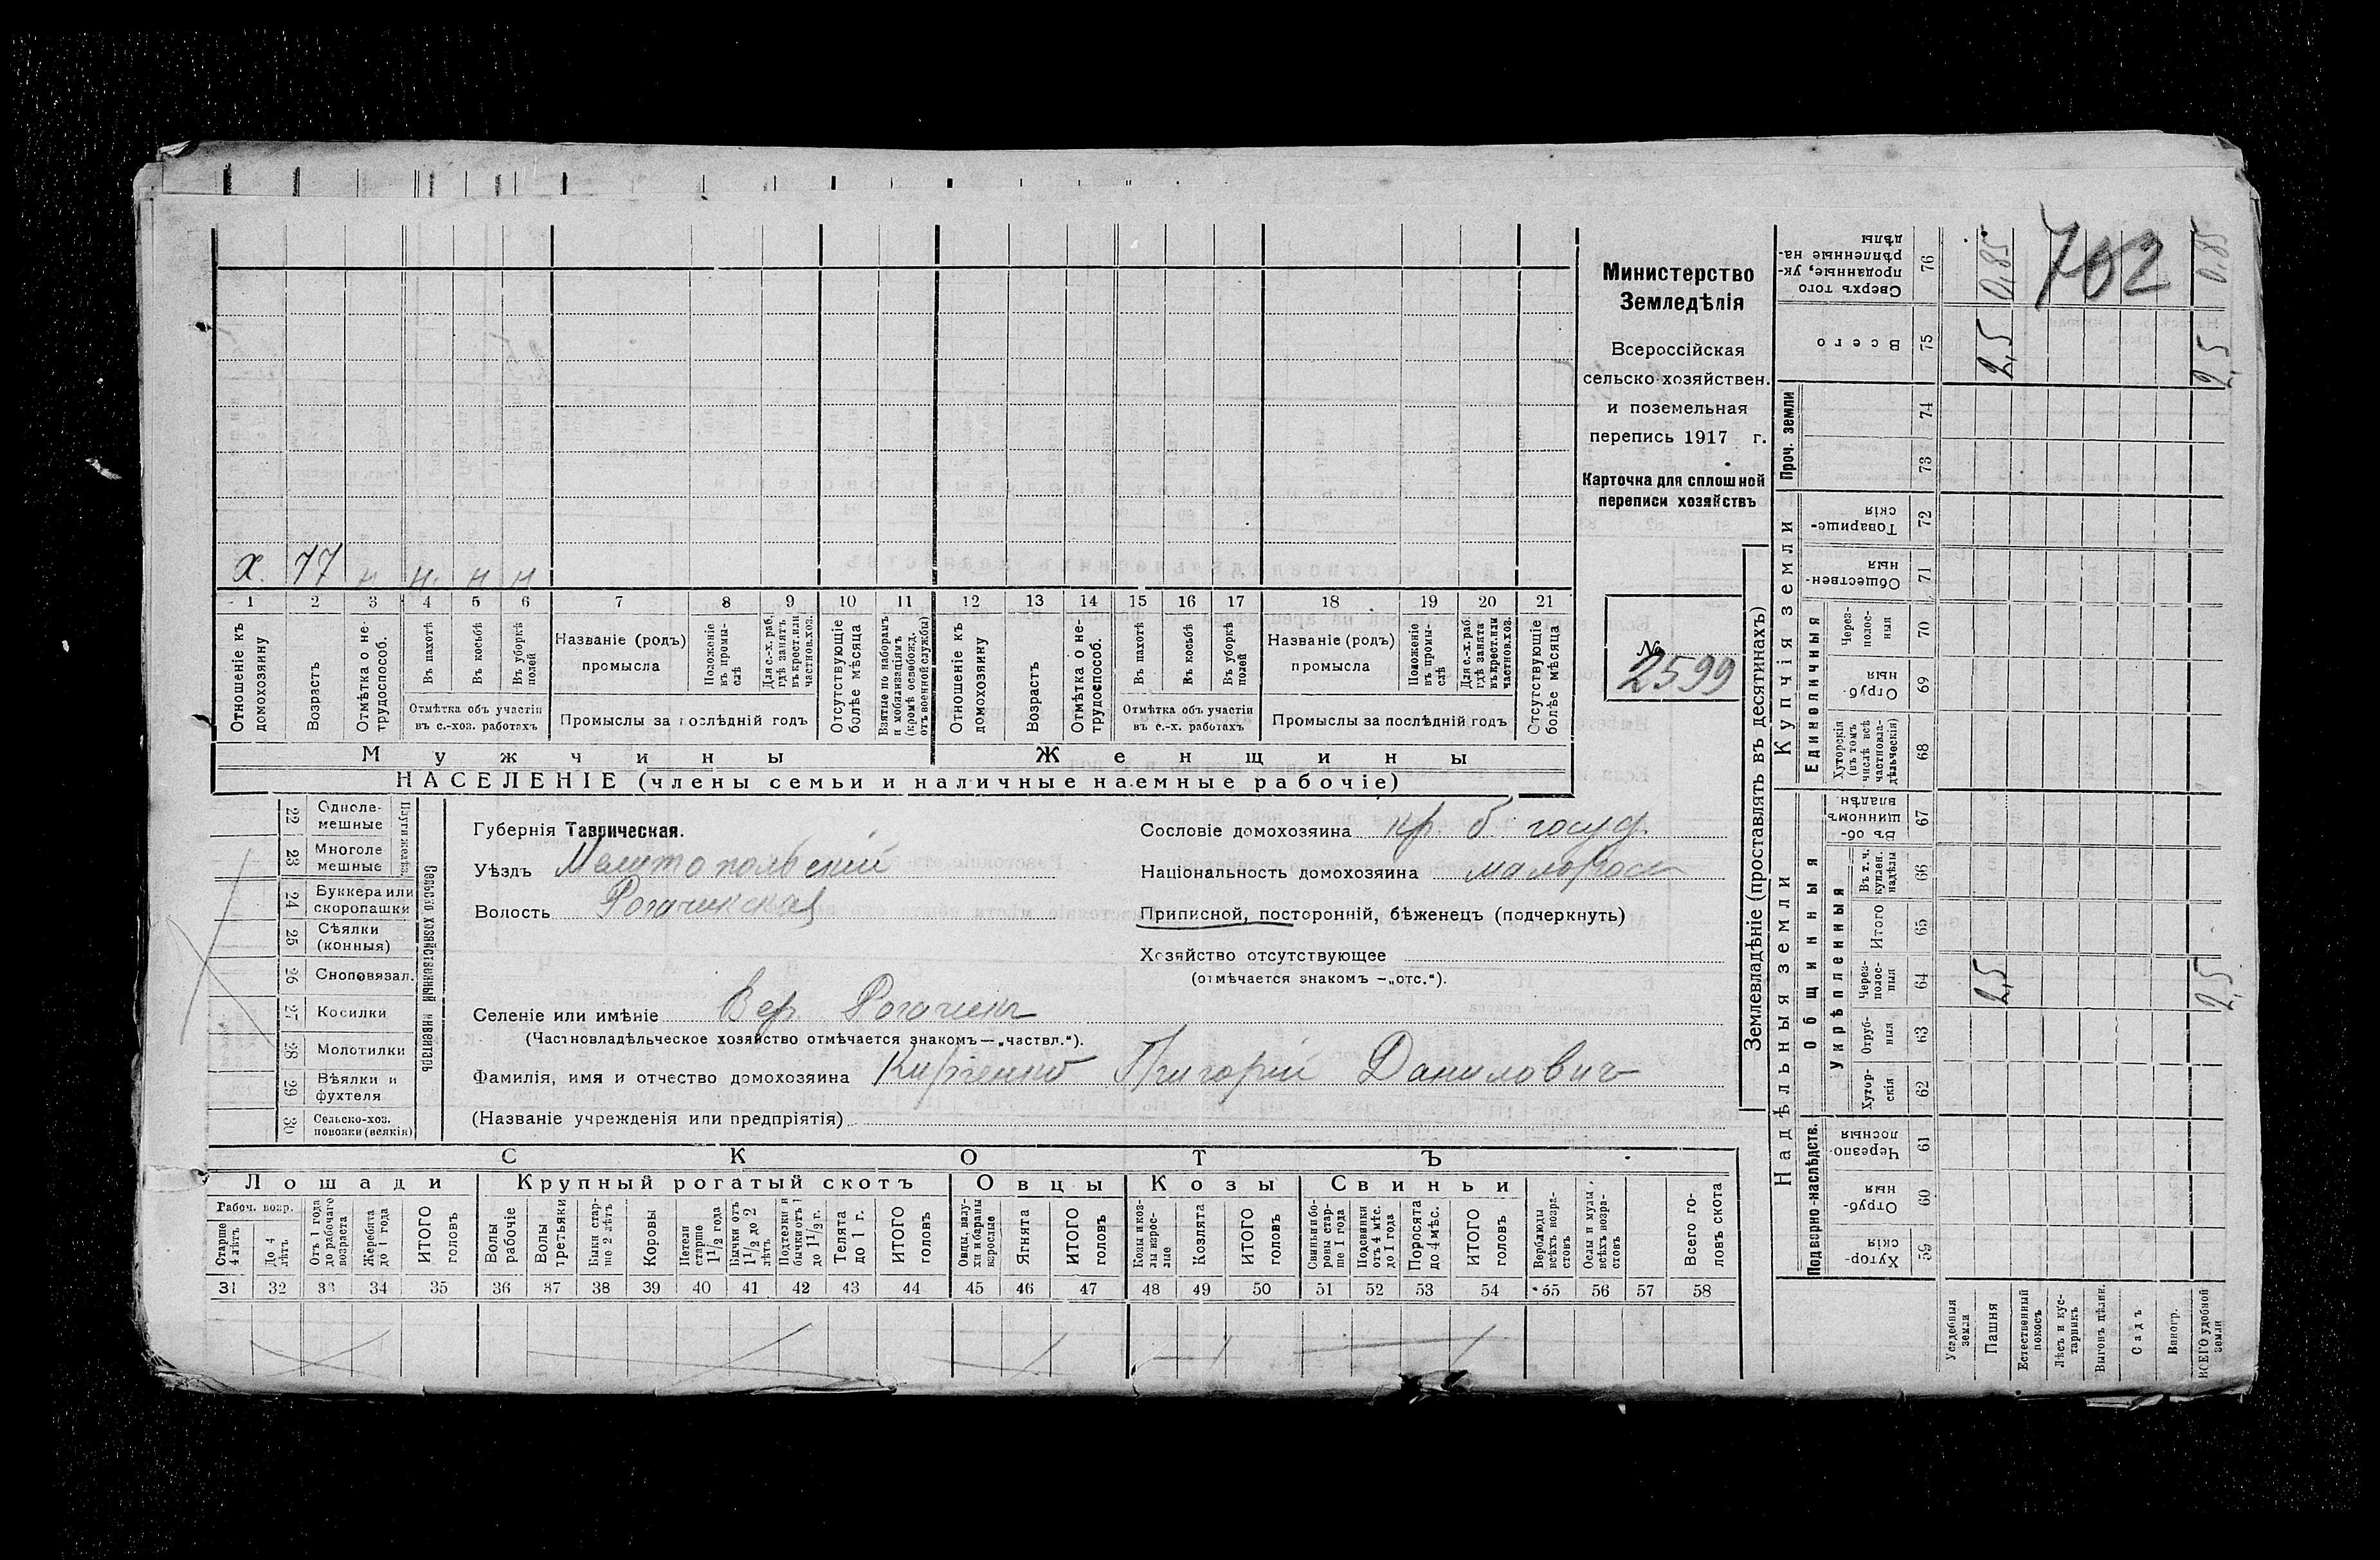 х. 77 н н. н н
1 2 3 4 5 6 7 8 9 10 11 12 13 14 15 16 17 18 19 20 21
Отношеніе къ домохозяину
Возрастъ
Отмѣтка о не-
трудоспособ.
Въ пахотѣ
Въ косьбѣ
Въ уборкѣ полей
Отмѣтка объ участіи
въ с.-хоз. работахъ
Названіе (родъ)
промысла
Положеніе
въ промы-
слѣ
Для с.-х. раб.
гдѣ занятъ
въ крест. или
частнов. хоз.
Промыслы за послѣдній годъ
Отсутствующіе
болѣе мѣсяца
Взятые по наборамъ
и мобилизаціямъ
(кромѣ освобожд.
отъ военной службы)
Отношеніе къ
домохозяину
Возрастъ
Отмѣтка о не-
трудоспособ.
Въ пахотѣ
Въ косьбѣ
Въ уборкѣ
полей
Отмѣтка объ участіи
въ с.-х. работахъ
Названіе (родъ)
промысла
Положеніе
въ промы-
слѣ
Для с.-х. раб.
гдѣ занята
въ крест. или
частнов. хоз.
Промыслы за послѣдній годъ
Отсутствующіе
болѣе мѣсяца
Мужчины Женщины
НАСЕЛЕНІЕ (члены семьи и наличные наемные рабочіе)
Министерство
Земледѣлія
Всероссійская
сельско-хозяйствен.
и поземельная
перепись 1917 г.
Карточка для сплошной
переписи хозяйствъ
№
2599
22 Одноле-
мешные
23 Многоле
мешные
24 Буккера или
скоропашки
25 Сѣялки
(конныя)
26 Сноповязал.
27 Косилки
28 Молотилки
29 Вѣялки и
фухтеля
30 Сельско-хоз.
повозки (всякія)
Сельско хозяйственный инвентарь
Губернія Таврическая.
Уѣздъ Мелитопольскій
Волость Рогачикская
Селеніе или имѣніе Вер. Рогачикъ
(Частновладѣльческое хозяйство отмѣчается знакомъ—„частвл.“).
Фамилія, имя и отчество домохозяина Кириченко Григорій Даниловичъ
(Названіе учрежденія или предпріятія)
Сословіе домохозяина кр. б. госуд.
Національность домохозяина малоросс
Приписной, посторонній, бѣженецъ (подчеркнуть)
Хозяйство отсутствующее
(отмѣчается знакомъ —„отс.“).
СКОТЪ
Лошади Крупный рогатый скотъ Овцы Козы Свиньи
Рабоч. возр.
Старше
4 лѣтъ
До 4
лѣтъ
Отъ 1 года
до рабочаго
возраста
Жеребята
до 1 года
ИТОГО
головъ
Волы
рабочіе
Волы
третьяки
Быки стар-
ше 2 лѣтъ
Коровы
Нетели
старше
1 1/2 года
Бычки отъ
1 1/2 до 2
лѣтъ
Подтелки и
бычки отъ 1
до 1 1/2 г.
Телята
до 1 г.
ИТОГО
головъ
Овцы, валу-
хи и бараны
взрослые
Ягнята
ИТОГО
головъ
Козы и коз-
лы взрос-
лые
Козлята
ИТОГО
головъ
Свиньи и бо-
ровы стар-
ше 1 года
Подсвинки
отъ 4 мѣс.
до 1 года
Поросята
до 4 мѣс.
ИТОГО
головъ
Верблюды
всѣхъ возра-
стовъ
Ослы и мулы
всѣхъ возра-
стовъ
Всего го-
ловъ скота
31 32 33 34 35 36 37 38 39 40 41 42 43 44 45 46 47 48 49 50 51 52 53 54 55 56 57 58
Землевладѣніе (проставлять въ десятинахъ)
Надѣльныя земли Купчія земли Проч. земли
Подворно-наслѣдств. Общинныя Единоличныя
Укрѣпленныя
Хутор-
скія
59
Отруб-
ныя
60
Черезпо-
лосныя
61
Хутор-
скія
62
Отруб-
ныя
63
Через-
полос-
ныя
64
Итого
65
Въ т. ч.
куплен.
надѣлы
66
Въ об-
щинномъ
владѣн.
67
Хуторскія
(въ томъ
числѣ всѣ
частновла-
дѣльческія)
68
Отруб-
ныя
69
Через-
полос-
ныя
70
Обществен-
ныя
71
Товарище-
скія
72
73
74
Всего
75
Сверхъ того
проданные, ук-
рѣпленные на-
дѣлы
76
Усадебныя
земли
Пашня
2,5 2,5 0,85
Естественный
покосъ
Лѣсъ и кус-
тарникъ
Выгонъ цѣлин.
Садъ
Виногр.
ВСЕГО удобной
земли
2,5 2,5 0.85
702